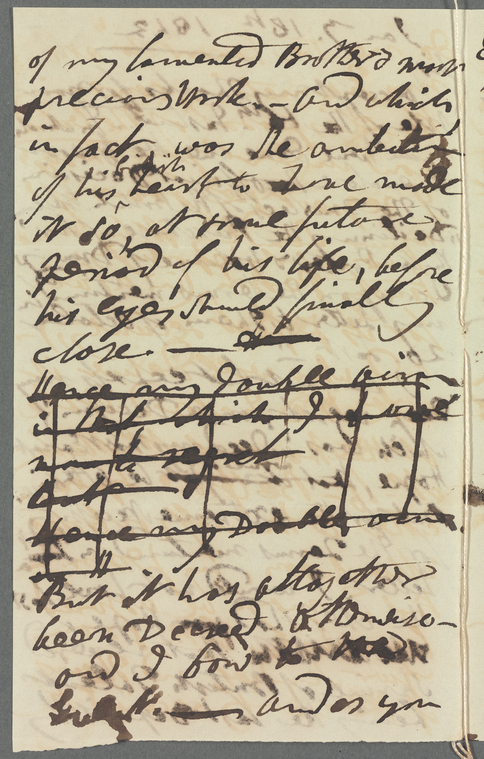 of my lamented Brother's most
precious work. - and which,
in fact, was the ambition
of his British heart to have made
it so, at some future
period of his life, before
his eyes should finally
close. —
Hence my double aim
in that which I
regret
but
Hence my Double aim
in it
But it has altogether
been Decreed otherwise -
and I bow to
— and as you